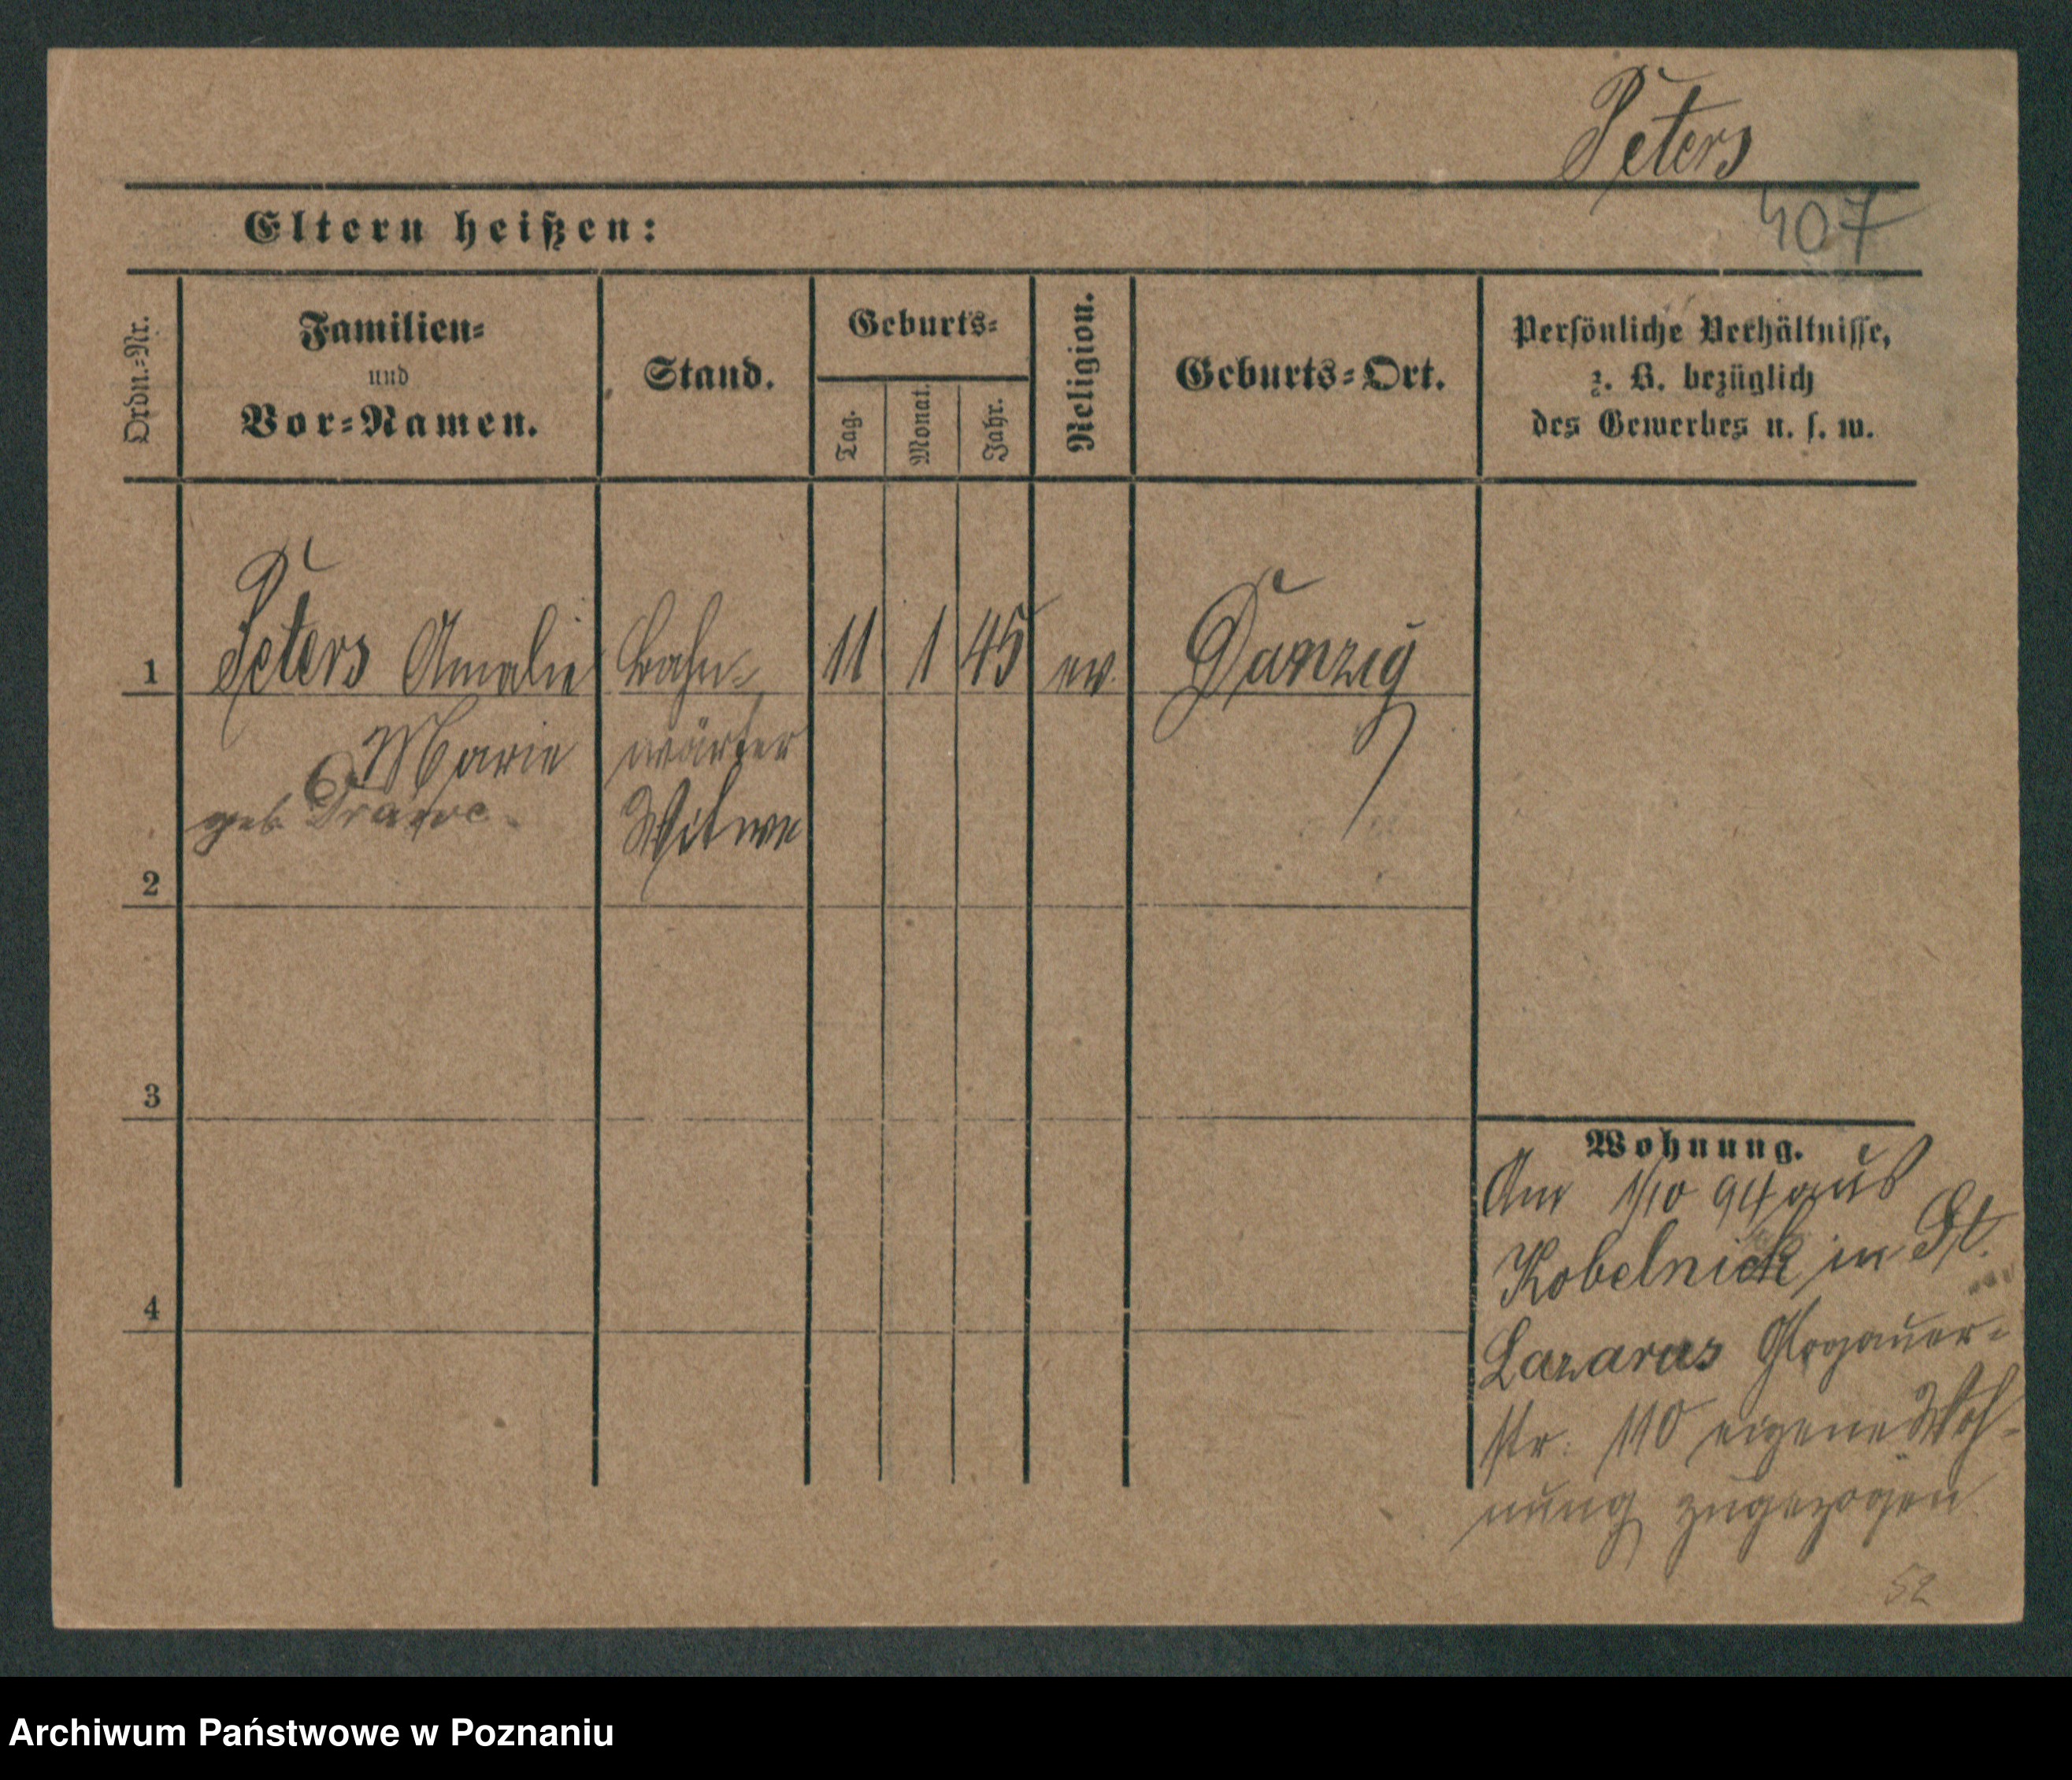 Peters
407
Eltern heißen:
Ordn.-Nr.
Familien-
und
Vor-Namen.
Stand.
Geburts-
Tag.
Monat.
Jahr.
Religion.
Geburts-Ort.
Persönliche Verhältnisse,
z. B. bezüglich
des Gewerbes u. s. w.
1
Peters Amalie
Bahn-
11
1
45
ev.
Danzig
Marie
wärter
geb.
Witwe
2
3
4
Wohnung.
Am 1/10 94 aus
Kobelnick in St.
Lazarus Glogauer-
str. 110 eigene Woh-
nung zugezogen
52
Archiwum Państwowe w Poznaniu